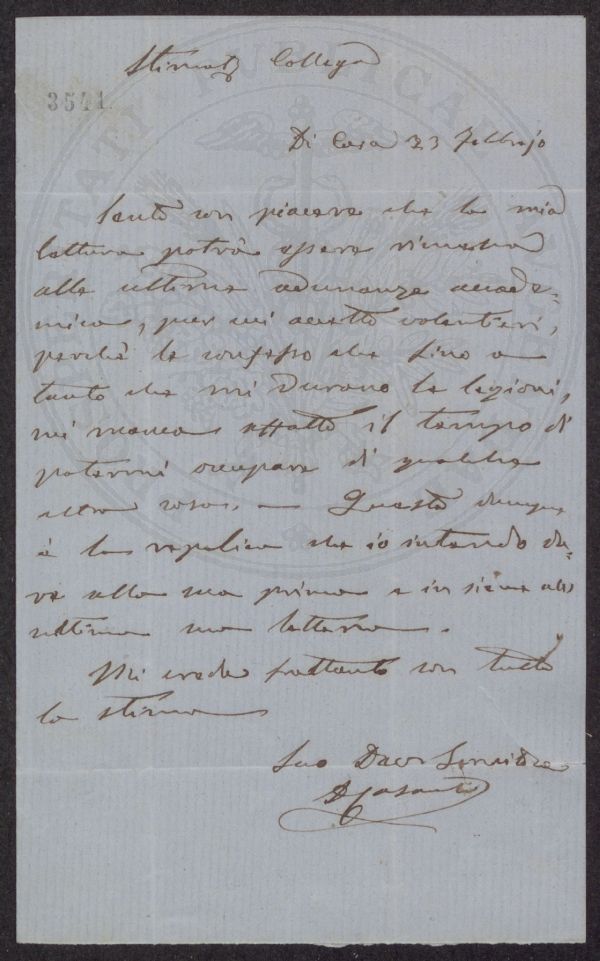 Stimat.º Collega
3541
Di Casa 23 Febbrajo
Sento con piacere che la mia
lettura potrà essere rimessa
alle ultime adunanze accade=
miche, per cui accetto volentieri,
perchè le confesso che fino a
tanto che mi durano le lezioni,
mi manca affatto il tempo di
potermi occupare di qualche
altra cosa. — Questa dunque
è la replica che io intendo da=
re alla sua prima e insieme all'
ultima sua lettera.
Mi creda frattanto con tutta
la stima
Suo Devº Servidore